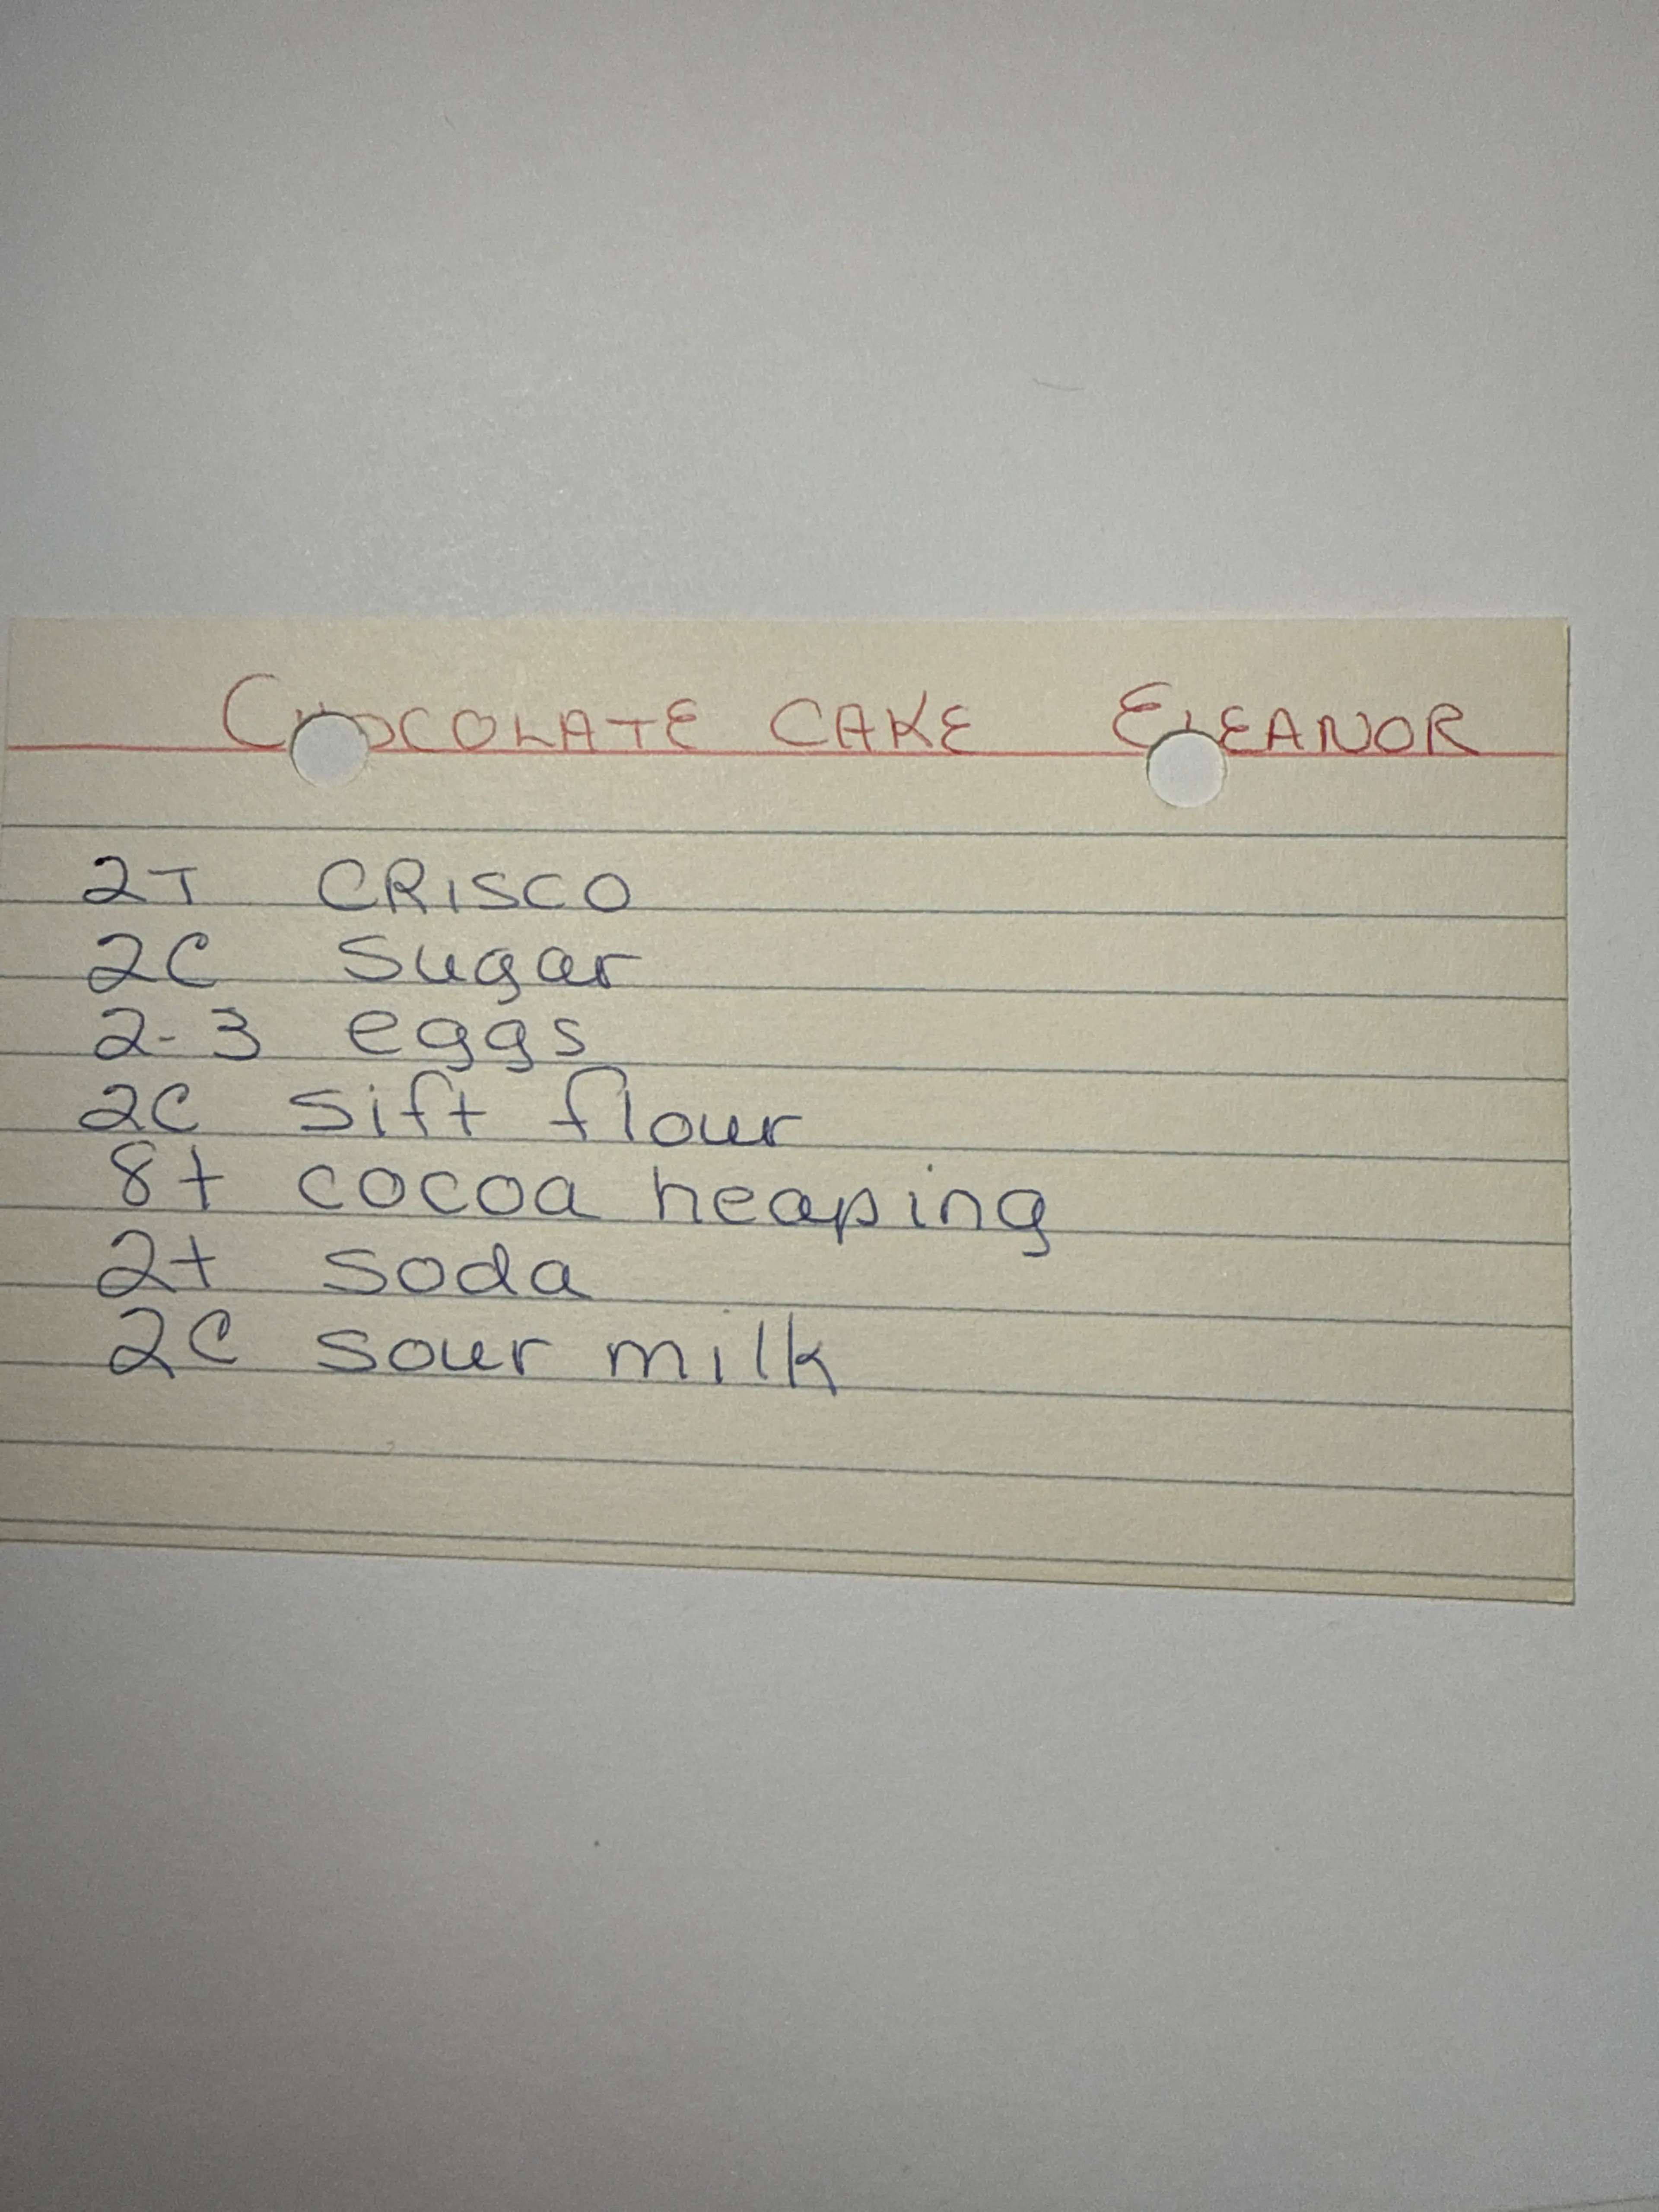 CHOCOLATE CAKE ELEANOR
2T CRISCO
2C Sugar
2-3 eggs
2C sift flour
8t cocoa heaping
2t soda
2C sour milk